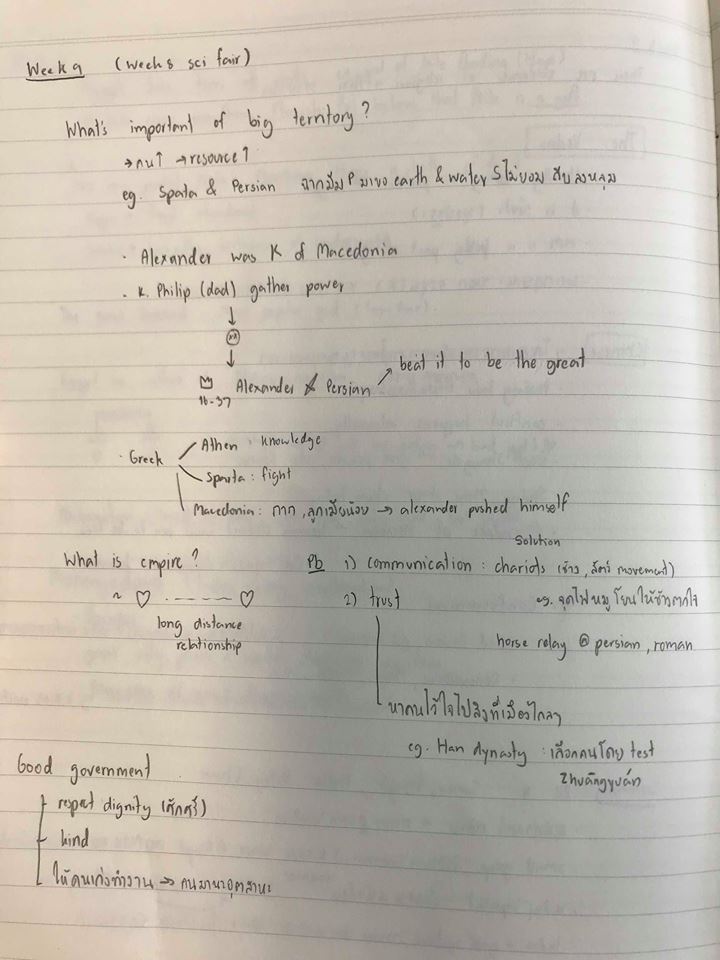 Week 9 (week 8 sci fair)
What's important of big territory?
→ คน↑ → resource↑
eg. Spata & Persian ฉากมีม P มาขอ earth & water S ไม่ยอม ถีบลงหลุม
· Alexander was K of Macedonia
· K. Philip (dad) gather power
↓
↓
Alexander Persian ↗ beat it to be the great
· Greek
Athen : knowledge
Sparta : fight
Macedonia : กาก, ลูกเมียน้อย → alexander pushed himself
What is empire?
~ ♡ - - - - ♡
long distance
relationship
Solution
Pb 1) communication : chariots (ช้าง, สัตว์ movement)
2) trust
eg. จุดไฟหมู โยนให้ช้างตกใจ
horse relay @ persian, roman
หาคนไว้ใจไปสิงที่เมืองไกลๆ
eg. Han dynasty : เลือกคนโดย test
Zhuàngyuán
Good government
respect dignity (ศักดิ์ศรี)
kind
ให้คนเก่งทำงาน → คนมานะอุตสาหะ